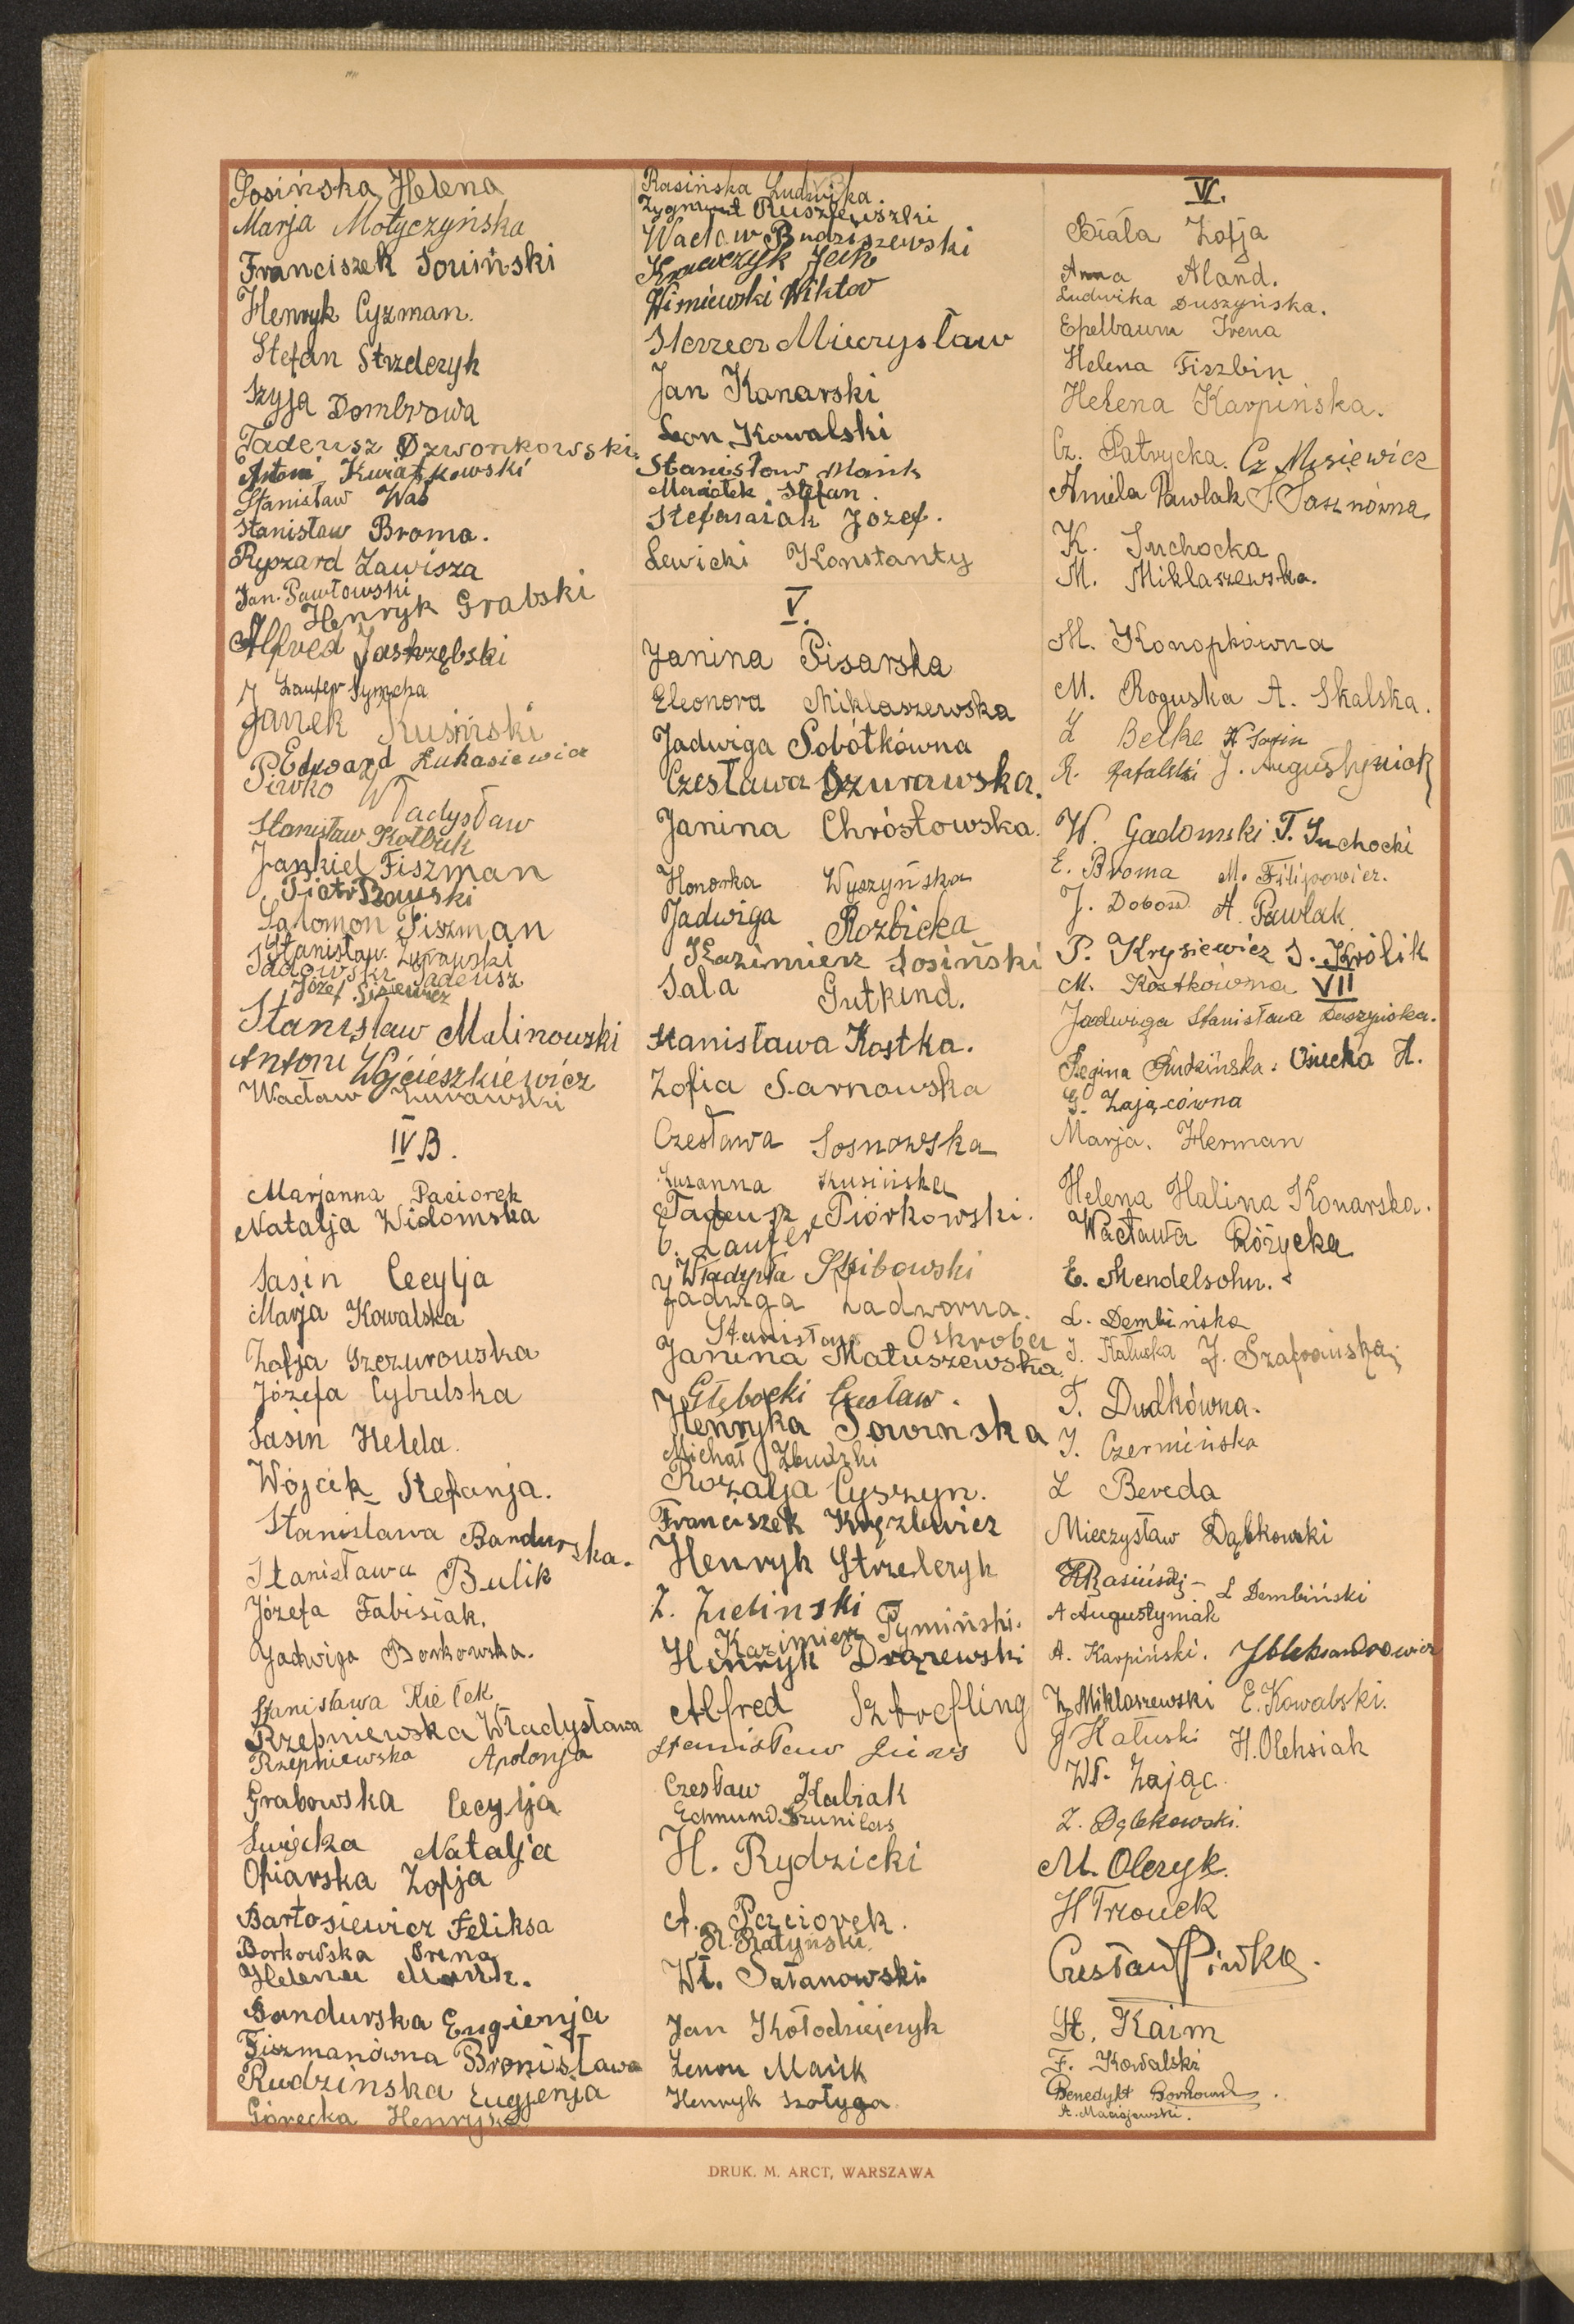 Sosińska Helena
Marja Motyczyńska
Franciszek Sowiński
Henryk Cyzman.
Stefan Strzelczyk
Szyja Dombrowa
Tadeusz Dzwonkowski.
Antoni Kwiatkowski
Stanisław Wąs
Stanisław Broma.
Ryszard Zawisza
Jan Pawłowski
Henryk Grabski
Alfred Jastrzębski
Laufer Symcha
Janek Rusiński
Edward Łukasiewicz
Piwko Władysław
Stanisław Kołbuk
Jankiel Fiszman
Piotr
Salomon Fiszman
Stanisław Żurawski
Sadowski Tadeusz
Józef
Stanisław Malinowski
Antoni Wojcieszkiewicz
Wacław Żurawski
IV B.
Marjanna Paciorek
Natalja Widomska
Sasin Cecylja
Marja Kowalska
Zofja Szczurowska
Józefa Cybulska
Sasin Helela.
Wójcik Stefanja.
Stanisława Bandurska.
Stanisława Bulik
Józefa Fabisiak.
Jadwiga Borkowska.
Stanisława Kiełek
Rzepniewska Władysława
Rzepniewska Apolonja
Grabowska Cecylja
Święcka Natalja
Ofiarska Zofja
Bartosiewicz Feliksa
Borkowska Irena
Helena Mańk.
Bandurska Eugienja
Fiszmanówna Bronisława
Rudzińska Eugjenja
Górecka Henryka
Rasińska Ludwika.
Zygmunt Ruszlewszki
Wacław Budziszewski
Krawczyk Jan
Wiśniewski Wiktor
Skrzecz Mieczysław
Jan Konarski
Leon Kowalski
Stanisław Mańk
Maciołek Stefan.
Stefaniak Józef.
Lewicki Konstanty
V.
Janina Pisarska
Eleonora Miklaszewska
Jadwiga Sobótkówna
Czesława Dzurawska.
Janina Chróstowska.
Honorka Wyszyńska
Jadwiga Rozbicka
Kazimierz Sosiński
Sala Gutkind.
Stanisława Kostka.
Zofia Sarnowska
Czesława Sosnowska
Zuzanna Kusińska
Tadeusz Piórkowski.
E. Laufer
Władysła Skibowski
Jadwiga Zadworna.
Stanisław Oskroba
Janina Matuszewska.
Głębocki Czesław.
Henryka Sowinska
Michał Zbudzki
Rozalja Cyszyn.
Franciszek Kręzlewicz
Henryk Strzelczyk
Z. Zieliński
Kazimierz Tymiński.
Henryk Drązewski
Alfred Sztrefling
Stanisław
Czesław Kubiak
Edmund Szunilas
H. Rydzicki
A. Paciorek.
R. Ratyński.
Wł. Satanowski
Jan Kołodziejczyk
Zenon Mańk
Henryk Szołyga
VI.
Biała Zofja
Anna Aland.
Ludwika Duszyńska.
Epelbaum Irena
Helena Fiszbin
Helena Karpińska.
Cz. Patrycka. Cz Misiewicz
Aniela Pawlak S. Sasinówna
K. Suchocka
M. Miklaszewska.
M. Konopkówna
M. Roguska A. Skalska.
Z Belke K Sasin
R. Rafalski J. Augustyniak
W. Gadomski. T. Suchocki
E. Broma M. Filipowicz.
J. Dobosz A. Pawlak
P. Krysiewicz S. Królik
M. Kostkówna VII
Jadwiga Stanisława Duszyńska.
Regina Rudzińska. Osiecka H.
G. Zającówna
Marja. Herman
Helena Halina Konarska.
Wacława Różycka
E. Mendelsohn.
L. Dembińska
J. Kałuska Z. Szafrańska
T. Dudkówna.
J. Czermińska
L Bereda
Mieczysław Dąbkowski
K Rasiński L Dembiński
A Augustyniak
A. Karpiński. J Oleksandrowicz
Z Miklaszewski E. Kowalski.
J Kałuski H. Oleksiak
Wł. Zając.
Z. Dąbkowski.
M. Olczyk.
H Trzonek
Czesław Piwko.
St. Kaim
F. Kowalski
Benedykt Borkowski.
A. Maciejewski.
DRUK. M. ARCT, WARSZAWA